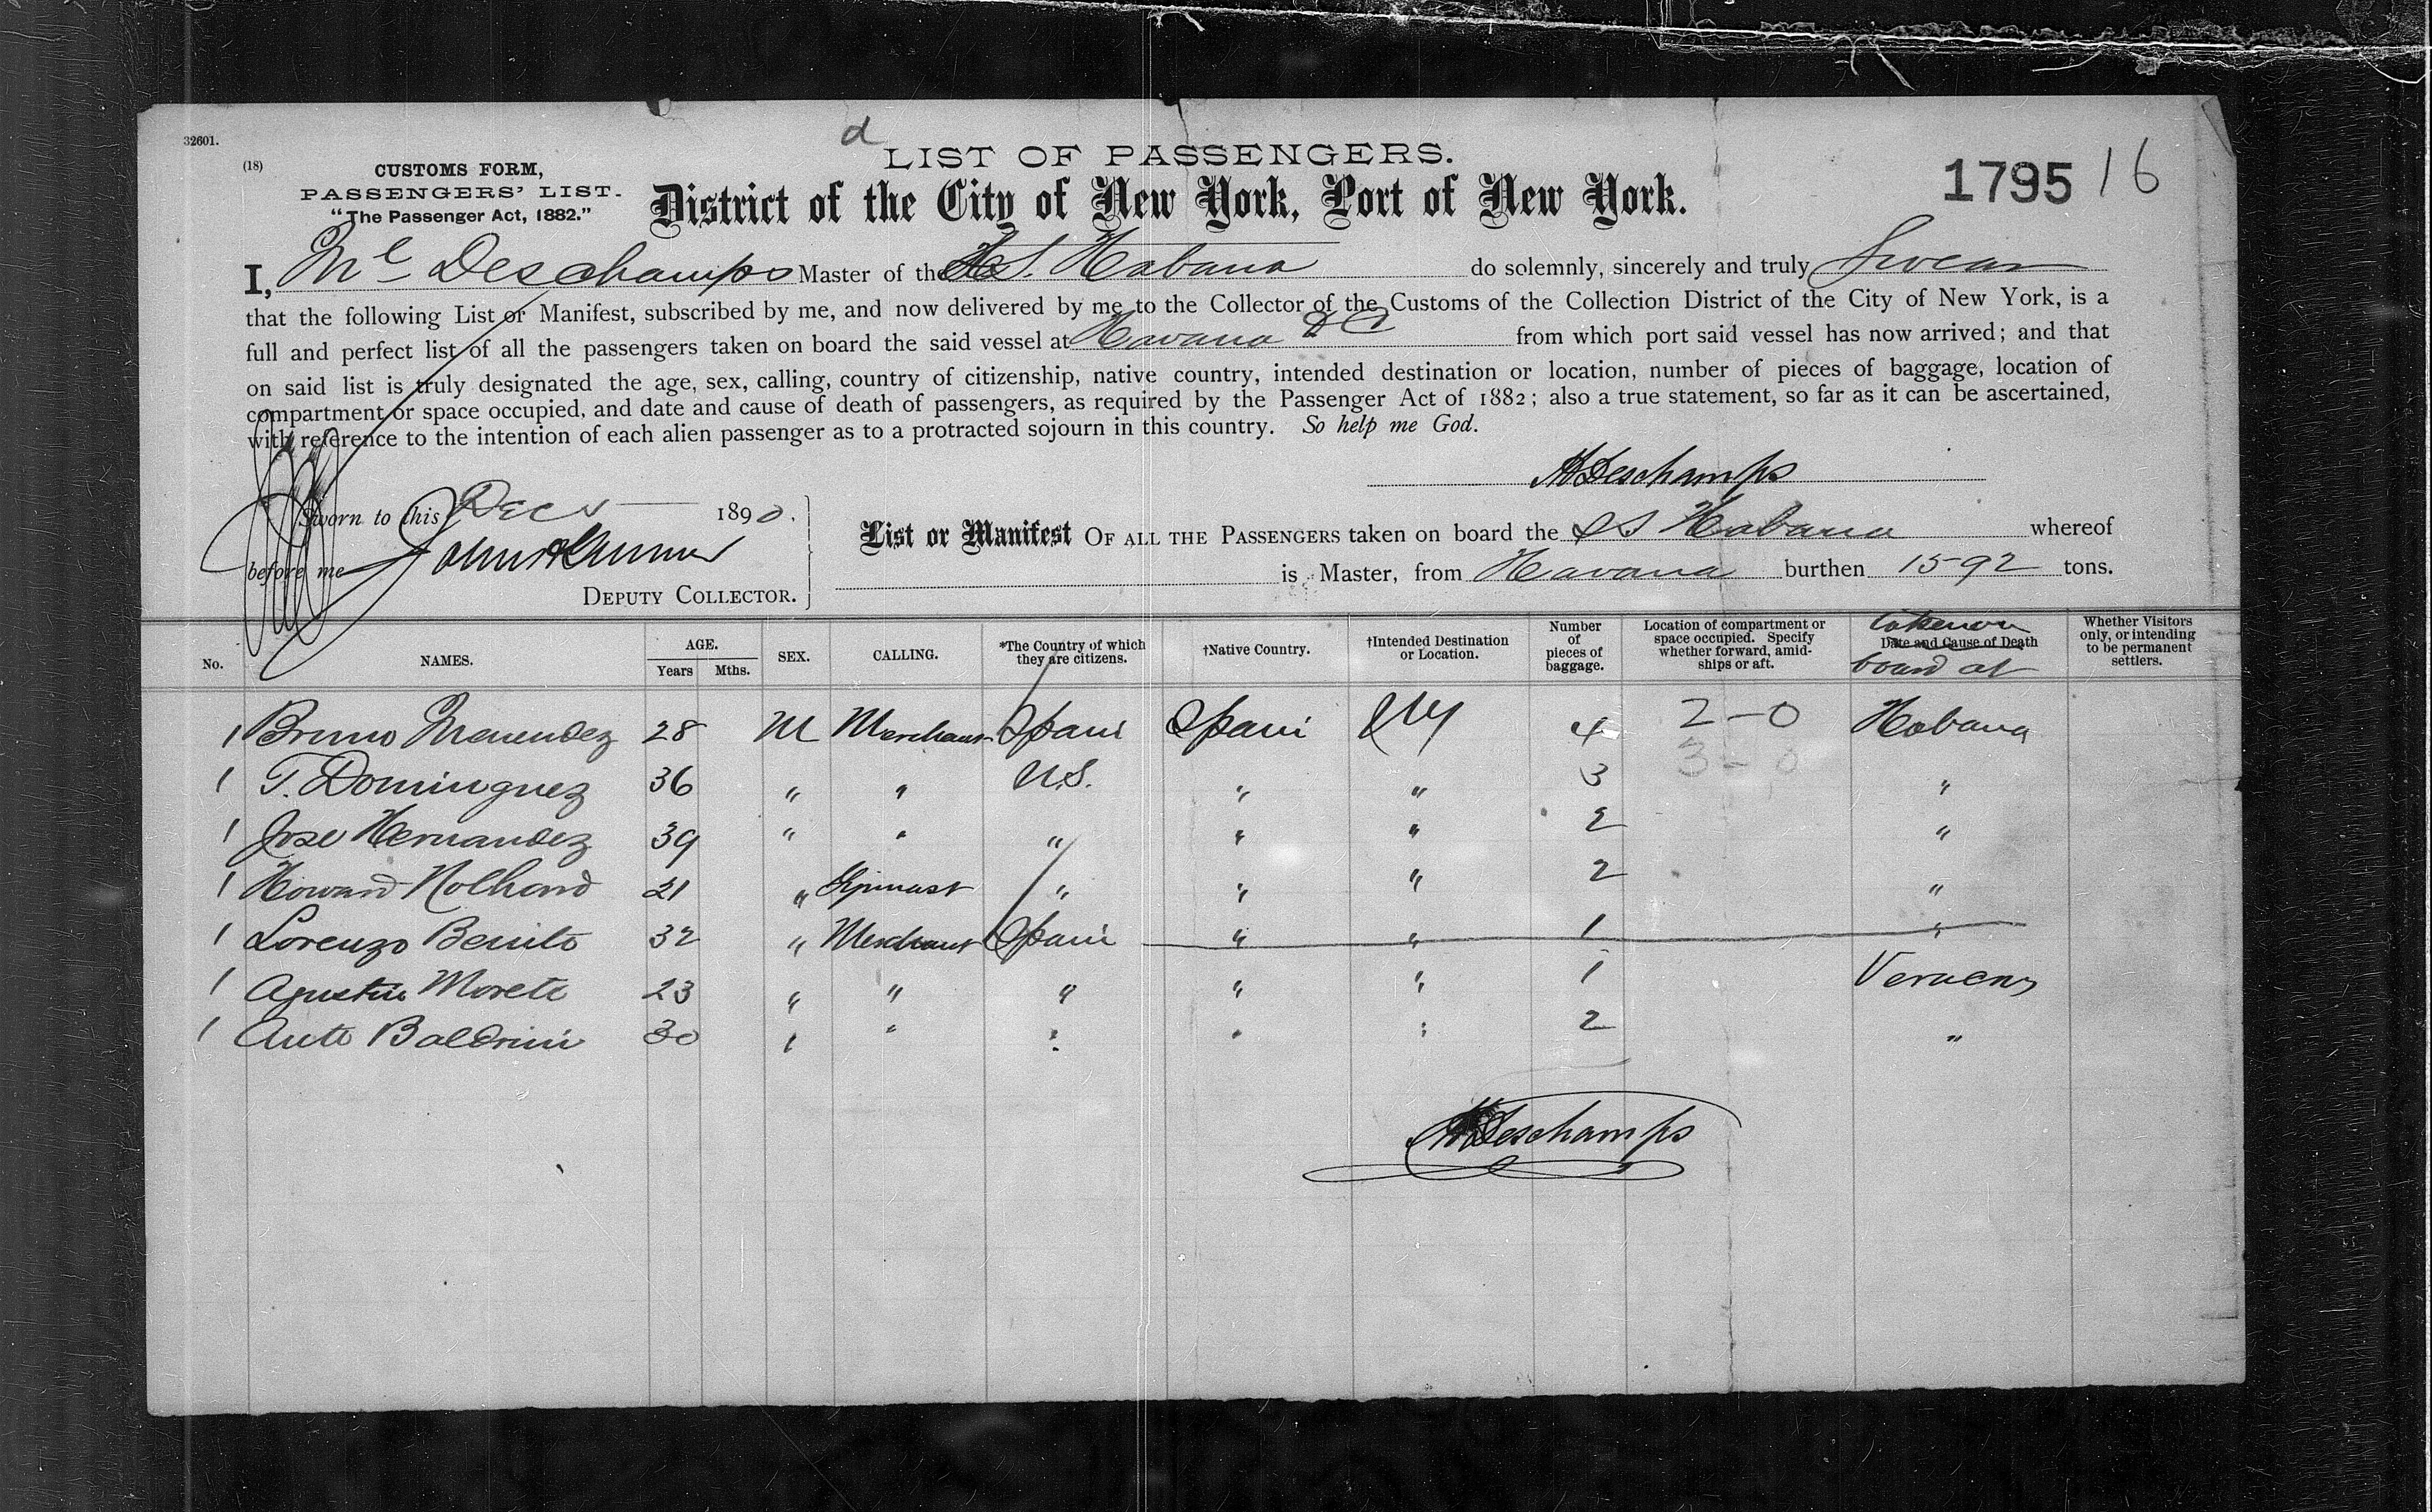 32601.
(18)
d
LIST OF PASSENGERS.
CUSTOMS FORM,
PASSENGERS' LIST.
"The Passenger Act, 1882."
District of the City of New York, Port of New York.
1795 16
I, Ml Deschamps Master of the S.S. Habana do solemnly, sincerely and truly Swear
that the following List or Manifest, subscribed by me, and now delivered by me to the Collector of the Customs of the Collection District of the City of New York, is a
full and perfect list of all the passengers taken on board the said vessel at Havana &c from which port said vessel has now arrived; and that
on said list is truly designated the age, sex, calling, country of citizenship, native country, intended destination or location, number of pieces of baggage, location of
compartment or space occupied, and date and cause of death of passengers, as required by the Passenger Act of 1882; also a true statement, so far as it can be ascertained,
with reference to the intention of each alien passenger as to a protracted sojourn in this country. So help me God.
MDeschamps
Sworn to this Dec 1890.
before me
DEPUTY COLLECTOR.
List or Manifest OF ALL THE PASSENGERS taken on board the SS Habana whereof
is Master, from Havana burthen 1592 tons.
No. NAMES. AGE. Years Mths. SEX. CALLING. *The Country of which they are citizens. †Native Country. †Intended Destination or Location. Number of pieces of baggage. Location of compartment or space occupied. Specify whether forward, amidships or aft. Date and Cause of Death taken on board at Whether Visitors only, or intending to be permanent settlers.
1 Bruno Menendez 28 M Merchant Spain Spain NY 4 2-0 Habana
3-0
1 T. Dominguez 36 " " U.S. " " 3 "
1 Jose Hernandez 39 " " " " " 2 "
1 Howard Holhond 21 " Gymnast " " " 2 "
1 Lorenzo Benito 32 " Merchant Spain " " 1 "
1 Agustin Morete 23 " " " " " 1 Veracruz
1 Anto Baldrini 30 " " " " " 2 "
MDeschamps